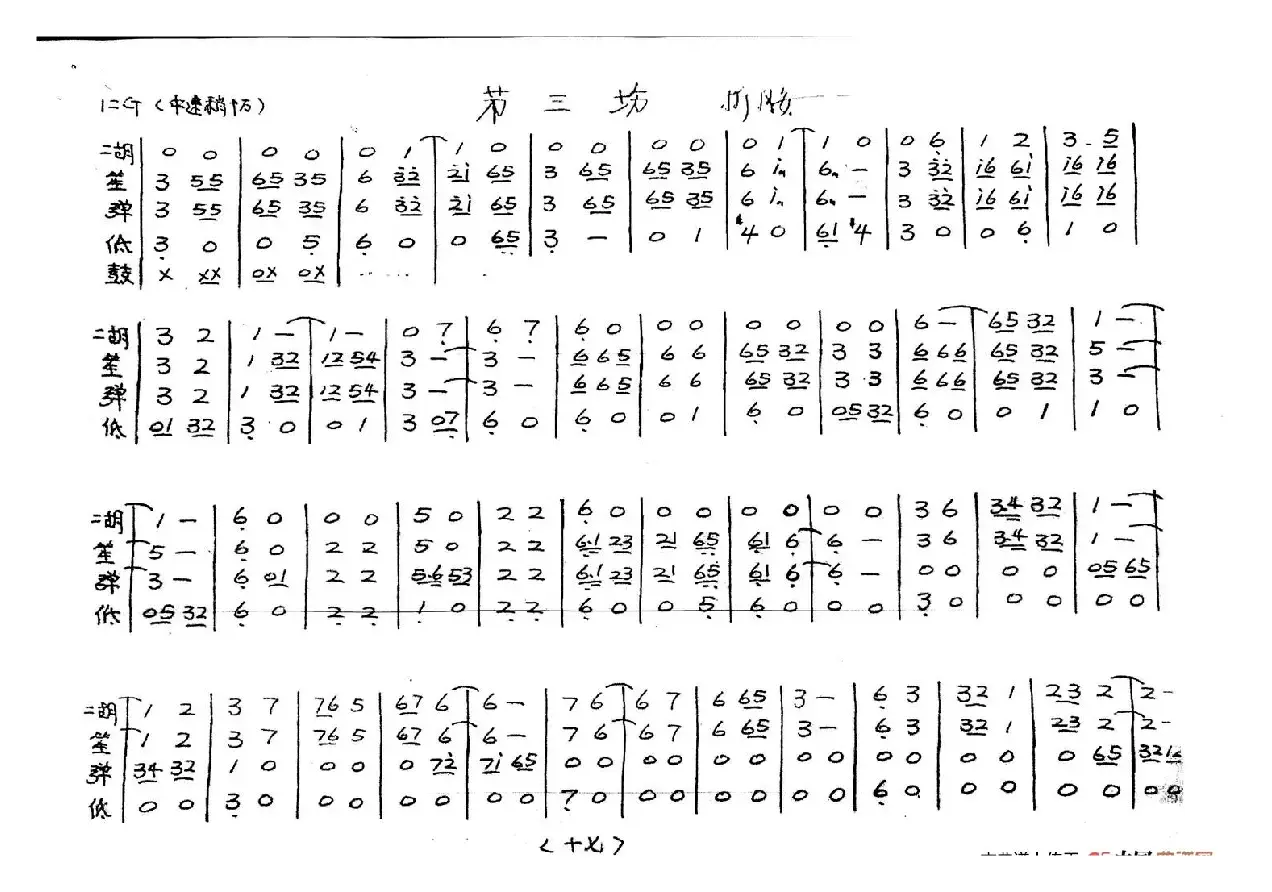 1=G（中速稍巧） 第三场
二胡 | 0 0 | 0 0 | 0 1 | 1 0 | 0 0 | 0 0 | 0 1 | 1 0 | 0 6 | 1 2 | 3. 5
笙 | 3 55 | 65 35 | 6 32 | 21 65 | 3 65 | 65 35 | 6 i | 6 – | 3 32 | i6 6i | i6 i6
弹 | 3 55 | 65 35 | 6 32 | 21 65 | 3 65 | 65 35 | 6 i | 6 – | 3 32 | i6 6i | i6 i6
低 | 3 0 | 0 5 | 6 0 | 0 65 | 3 – | 0 1 | #4 0 | 61 #4 | 3 0 | 0 6 | 1 0
鼓 | X XX | 0X 0X | ……
二胡 | 3 2 | 1 – | 1 – | 0 7 | 6 7 | 6 0 | 0 0 | 0 0 | 0 0 | 6 – | 65 32 | 1 –
笙 | 3 2 | 1 32 | 12 54 | 3 – | 3 – | 6 65 | 6 6 | 65 32 | 3 3 | 6 66 | 65 32 | 5 –
弹 | 3 2 | 1 32 | 12 54 | 3 – | 3 – | 6 65 | 6 6 | 65 32 | 3 3 | 6 66 | 65 32 | 3 –
低 | 01 32 | 3 0 | 0 1 | 3 07 | 6 0 | 6 0 | 0 1 | 6 0 | 05 32 | 6 0 | 0 1 | 1 0
二胡 | 1 – | 6 0 | 0 0 | 5 0 | 2 2 | 6 0 | 0 0 | 0 0 | 0 0 | 3 6 | 34 32 | 1 –
笙 | 5 – | 6 0 | 2 2 | 5 0 | 2 2 | 61 23 | 21 65 | 61 6 | 6 – | 3 6 | 34 32 | 1 –
弹 | 3 – | 6 01 | 2 2 | 56 53 | 2 2 | 61 23 | 21 65 | 61 6 | 6 – | 0 0 | 0 0 | 05 65
低 | 05 32 | 6 0 | 2 2 | 1 0 | 2 2 | 6 0 | 0 5 | 6 0 | 0 0 | 3 0 | 0 0 | 0 0
二胡 | 1 2 | 3 7 | 76 5 | 67 6 | 6 – | 7 6 | 6 7 | 6 65 | 3 – | 6 3 | 32 1 | 23 2 | 2 –
笙 | 1 2 | 3 7 | 76 5 | 67 6 | 6 – | 7 6 | 6 7 | 6 65 | 3 – | 6 3 | 32 1 | 23 2 | 2 –
弹 | 34 32 | 1 0 | 0 0 | 0 72 | 7i 65 | 0 0 | 0 0 | 0 0 | 0 0 | 0 0 | 0 0 | 0 65 | 32 12
低 | 0 0 | 3 0 | 0 0 | 0 0 | 0 0 | 7 0 | 0 0 | 0 0 | 0 0 | 6 0 | 0 0 | 0 0 | 0 0
〈十七〉